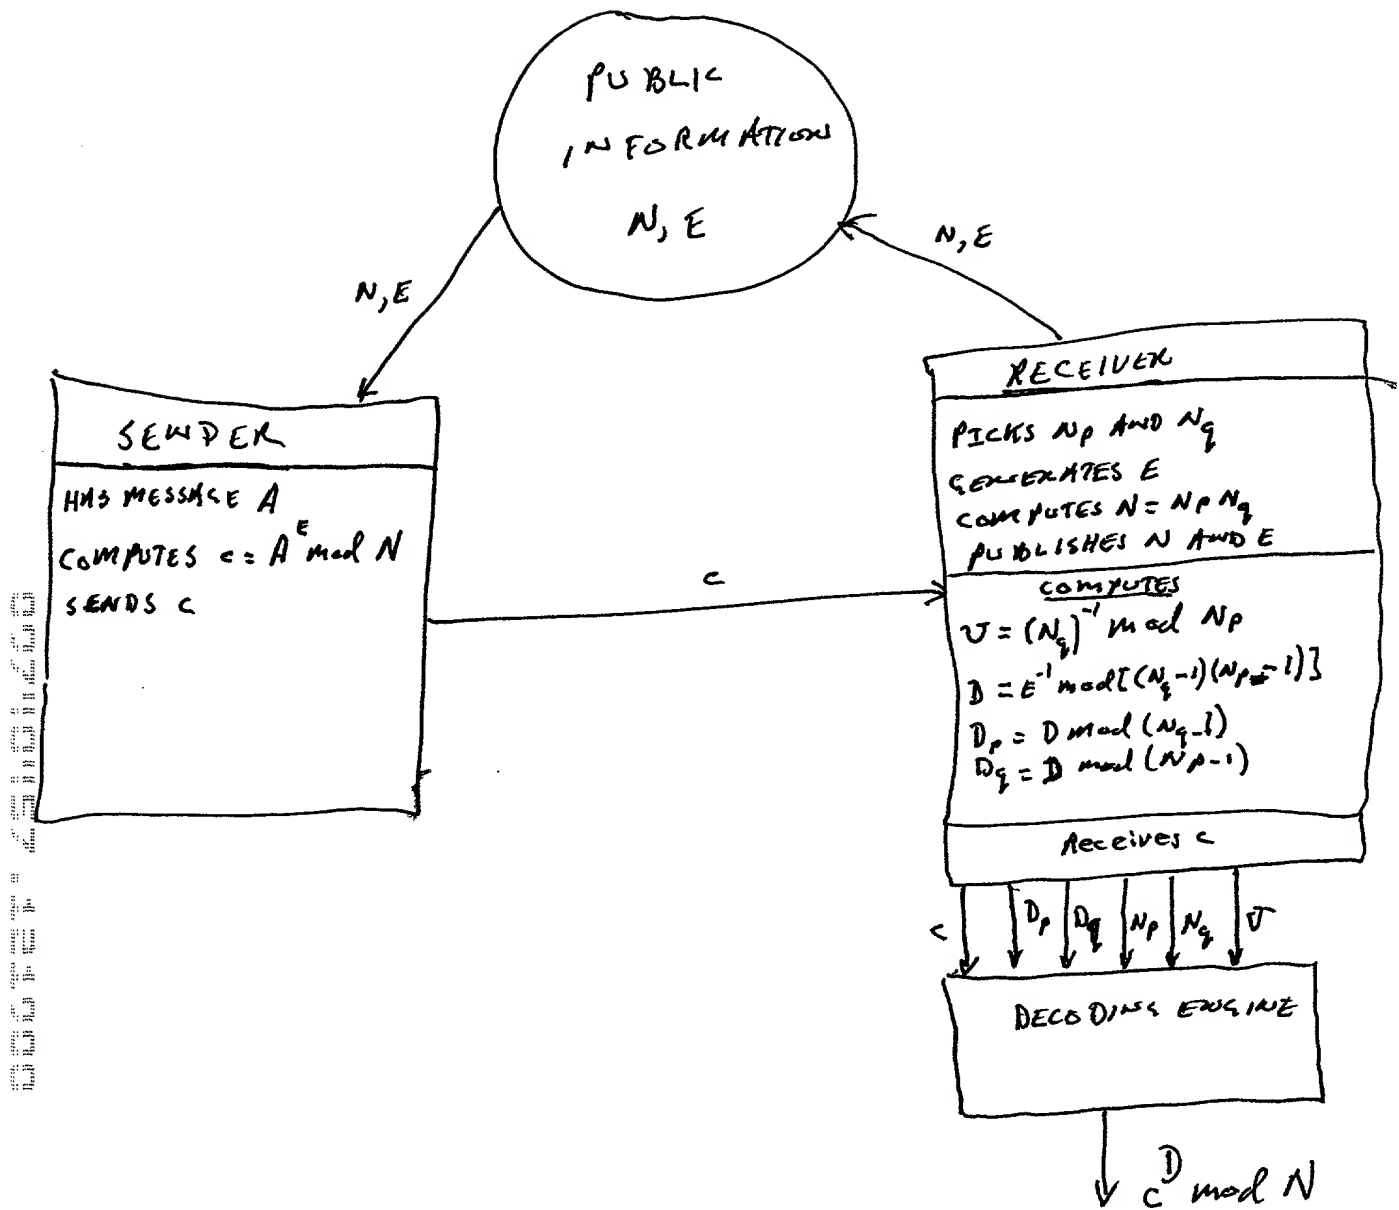 PUBLIC
INFORMATION
N, E
N, E
N, E
SENDER
HAS MESSAGE A
COMPUTES c = A^E mod N
SENDS C
c
RECEIVER
PICKS Np AND Nq
GENERATES E
COMPUTES N = Np Nq
PUBLISHES N AND E
COMPUTES
U = (Nq)^-1 mod Np
D = E^-1 mod [(Nq-1)(Np-1)]
Dp = D mod (Nq-1)
Dq = D mod (Np-1)
Receives c
c Dp Dq Np Nq U
DECODING ENGINE
c^D mod N